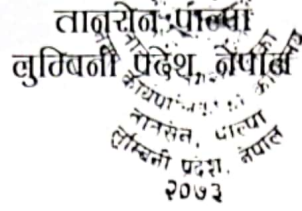 तानसेन, पाल्पा
लुम्बिनी प्रदेश, नेपाल
तानसेन, पाल्पा
लुम्बिनी प्रदेश, नेपाल
२०७३